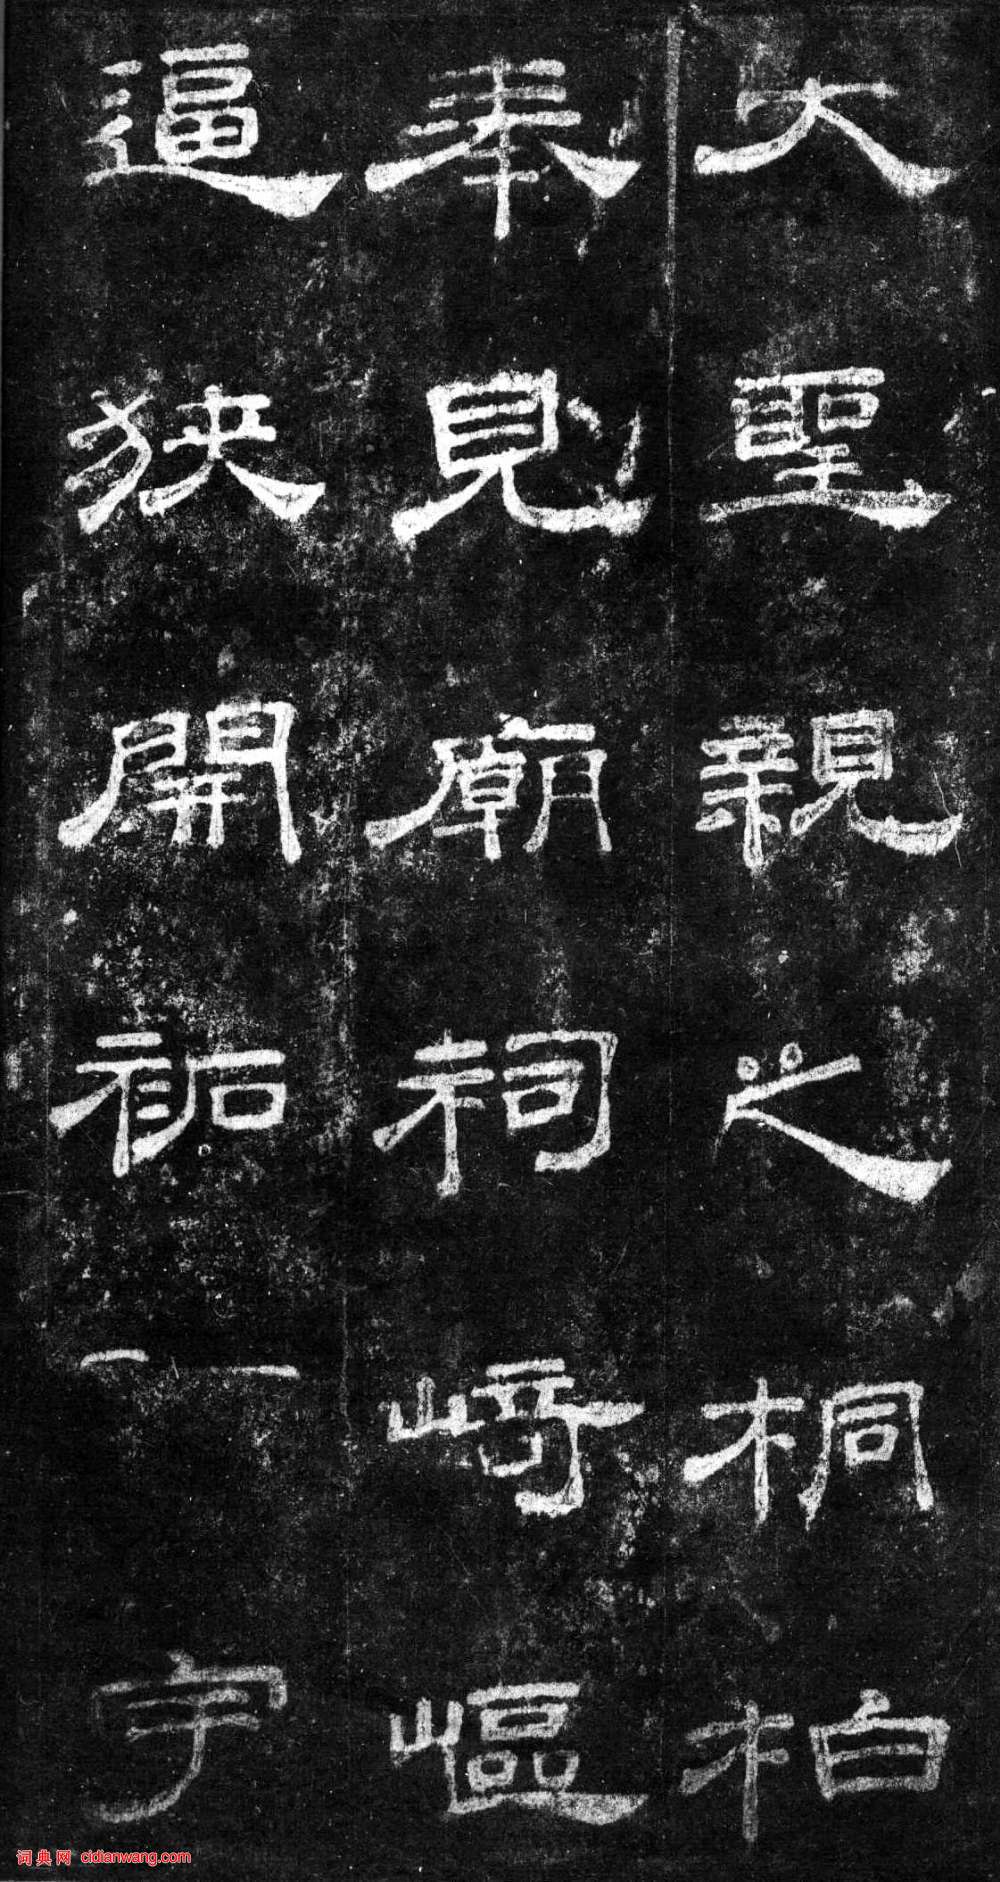 大聖親之桐柏
奉見廟祠崎嶇
逼狹開祏宇
词典网 cidianwang.com